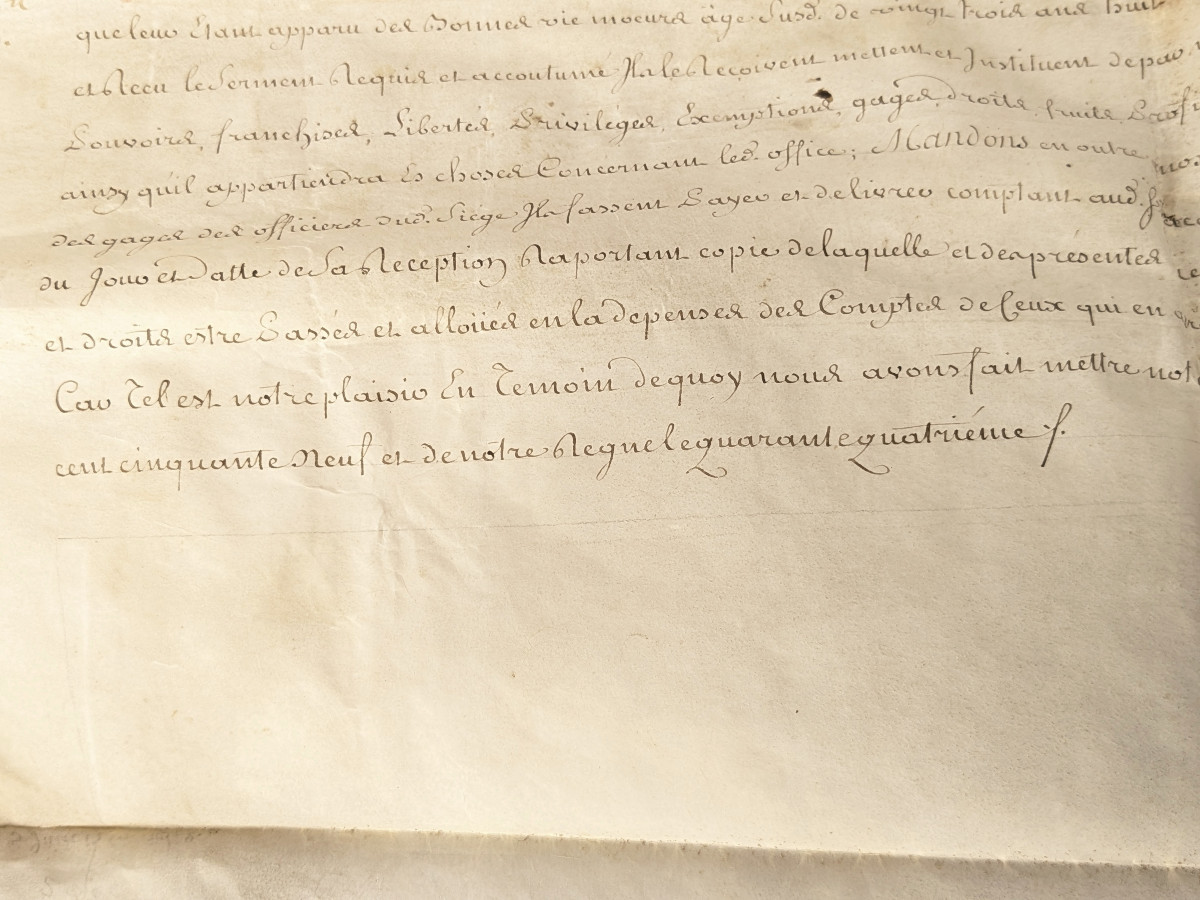 que leur Etant apparu des Bonnes vie moeurs âge Susd. de vingt trois ans huit
et Recu le Serment Requis et accoutumé Ils le Reçoivent mettent et Instituent de par
Pouvoirs, franchises, Libertés, Privileges, Exemptions, gages, droits, fruits, Prof
ainsy qu'il appartiendra Es choses Concernant led. office; MANDONS en outre
des gages des officiers dud. Siége Ils fassent Payer et delivrer comptant aud.
du Jour et Datte de Sa Reception Raportant copie de laquelle et des présentes
et droits estre Passés et alloüés en la depense des Comptes de Ceux qui en
Car Tel est notre plaisir En Temoin de quoy nous avons fait mettre not
cent cinquante Neuf et de notre Regne le quarante quatriéme